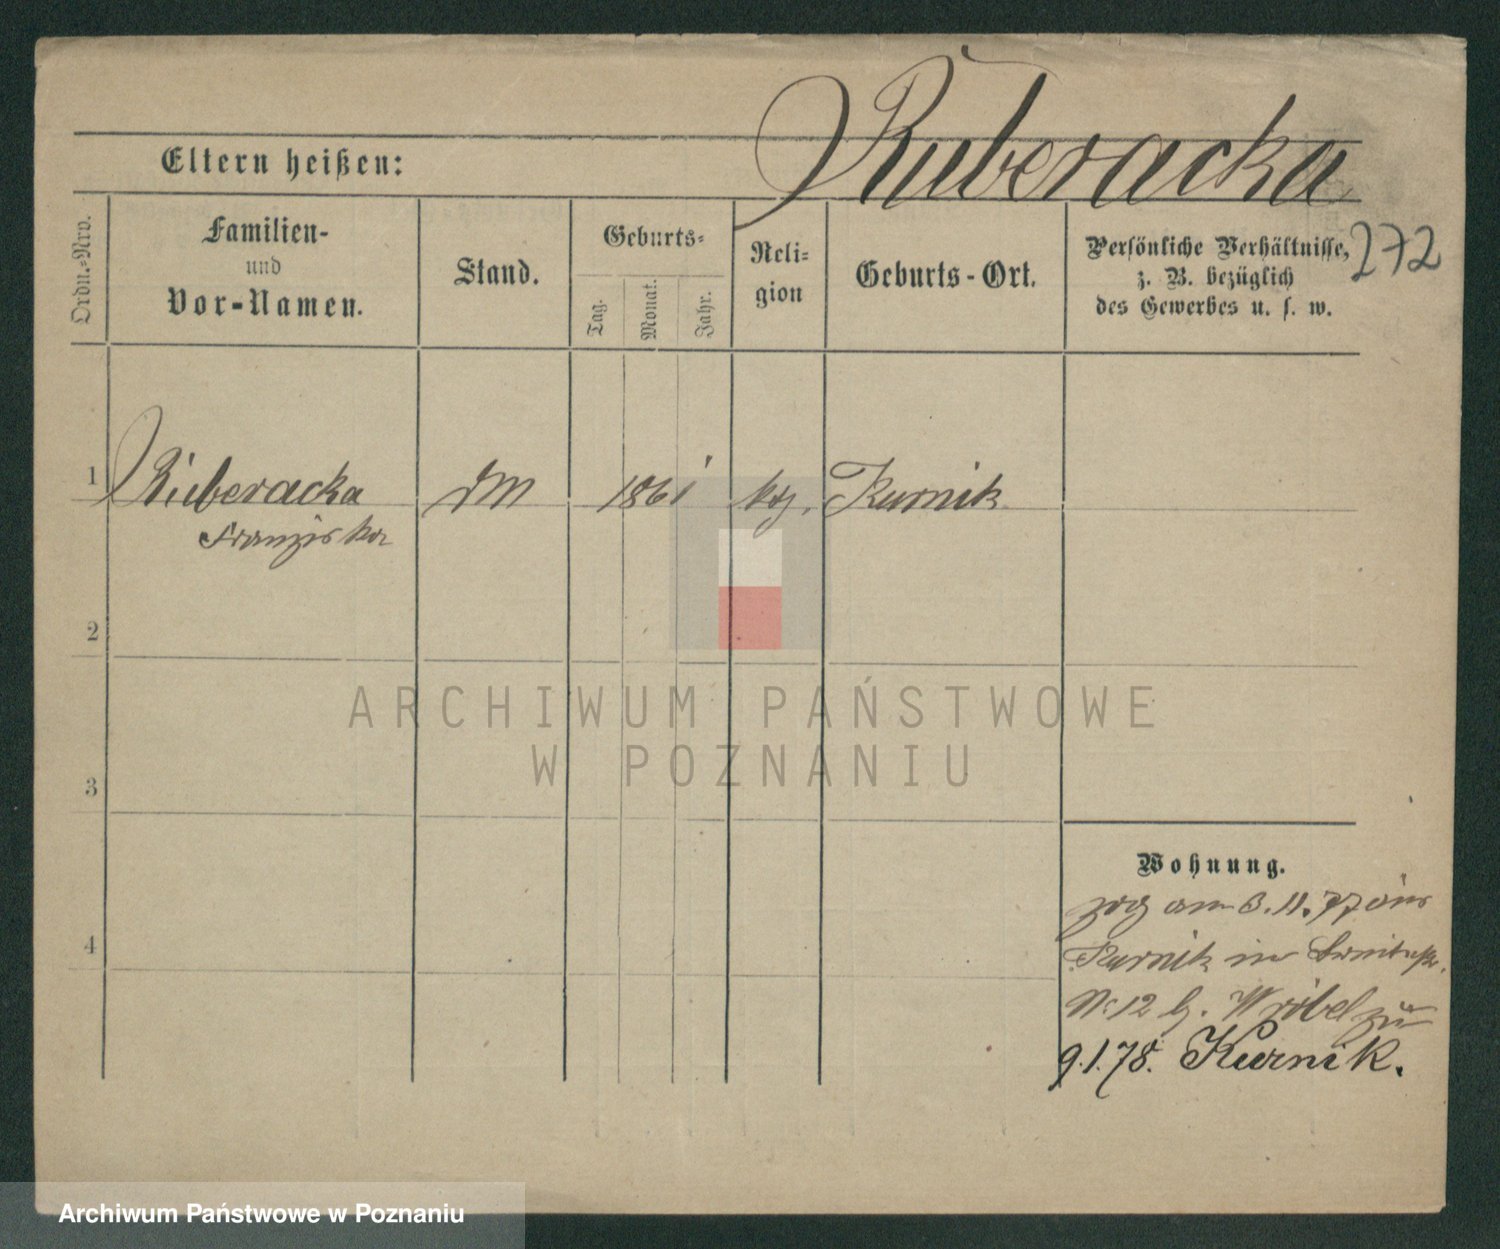 Ruberacka
Eltern heißen:
272
Ordn.-Nro.
Familien-
und
Vor-Namen.
Stand.
Geburts-
Tag.
Monat.
Jahr.
Reli-
gion
Geburts-Ort.
Persönliche Verhältnisse,
z. B. bezüglich
des Gewerbes u. s. w.
1 Ruberacka DM 1861 ktz. Kurnik
Franziska
2
ARCHIWUM PAŃSTWOWE
W POZNANIU
3
Wohnung.
zog am 3.11.77 aus
Kurnik in
4
No 12 b. Wróbel zu
9.1.78. Kurnik.
Archiwum Państwowe w Poznaniu